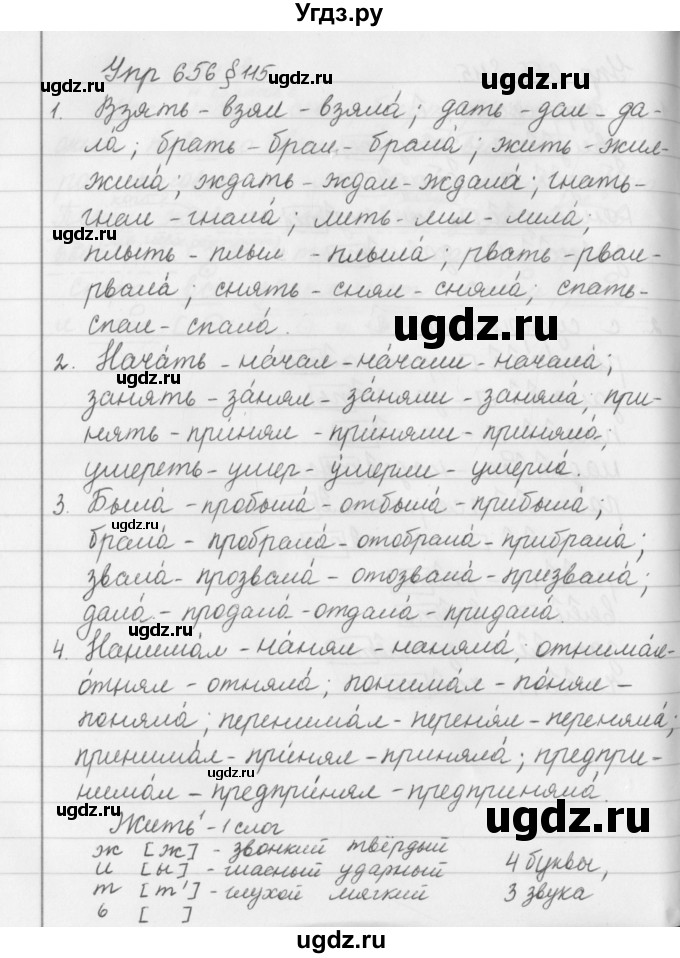 Угдз.ру
Упр 656 § 115
1. Взять - взял - взяла́; дать - дал - да-
ла́; брать - брал - брала́; жить - жил -
жила́; ждать - ждал - ждала́; гнать -
гнал - гнала́; лить - лил - лила́;
плыть - плыл - плыла́; рвать - рвал -
рвала́; снять - снял - сняла́; спать -
спал - спала́.
2. Нача́ть - на́чал - на́чали - начала́;
заня́ть - за́нял - за́няли - заняла́, при-
ня́ть - при́нял - при́няли - приняла́;
умереть - умер - у́мерли - умерла́.
3. Была́ - пробыла́ - отбыла́ - прибыла́;
брала́ - пробрала́ - отобрала́ - прибрала́;
звала́ - прозвала́ - отозвала́ - призвала́;
дала́ - продала́ - отдала́ - придала́.
4. Нанима́л - на́нял - наняла́, отнима́л -
о́тнял - отняла́; понима́л - по́нял -
поняла́; перенима́л - переня́л - переняла́;
принима́л - при́нял - приняла́; предпри-
нима́л - предпри́нял - предприняла́.
Жить - 1 слог
ж [ж] - звонкий твёрдый
и [ы] - гласный ударный 4 буквы,
т [т'] - глухой мягкий 3 звука
ь [ ]
ugdz.ru
ugdz.ru
ugdz.ru
ugdz.ru
ugdz.ru
ugdz.ru
ugdz.ru
ugdz.ru
ugdz.ru
ugdz.ru
ugdz.ru
ugdz.ru
ugdz.ru